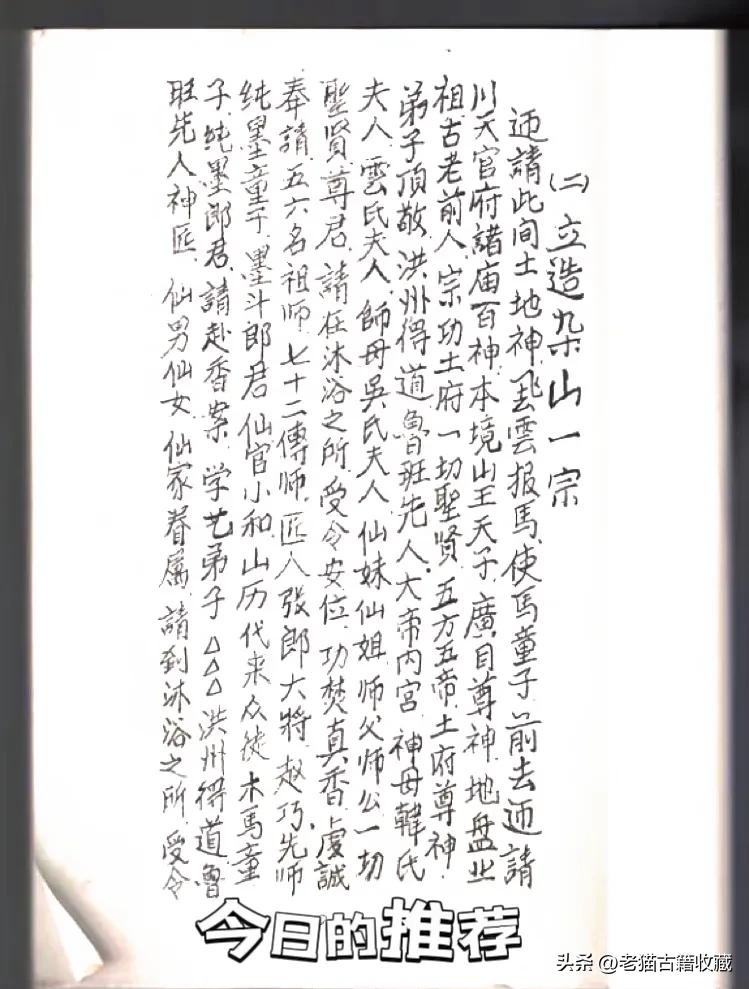 (二)立造朵山一宗
迊請此间土地神飛雲报馬使馬童子前去迊請
川天官府諸庙百神本境山王天子廣目尊神地盘业
祖古老前人宗功土府一切聖贤五方五帝土府尊神
弟子頂敬洪州得道魯班先人大帝内宫神母韓氏
夫人雲氏夫人師母吳氏夫人仙妹仙姐师父师公一切
聖賢尊君請在沐浴之所受令安位功焚真香虔誠
奉請五六名祖师七十二傳师匠人張郎大將赵巧先师
纯墨童子墨斗郎君仙官小和山历代来众徒木馬童
子纯墨郎君請赴香案学艺弟子△△△洪州得道魯
班先人神匠仙男仙女仙家眷属請到沐浴之所受令
今日的推荐
头条 @老猫古籍收藏